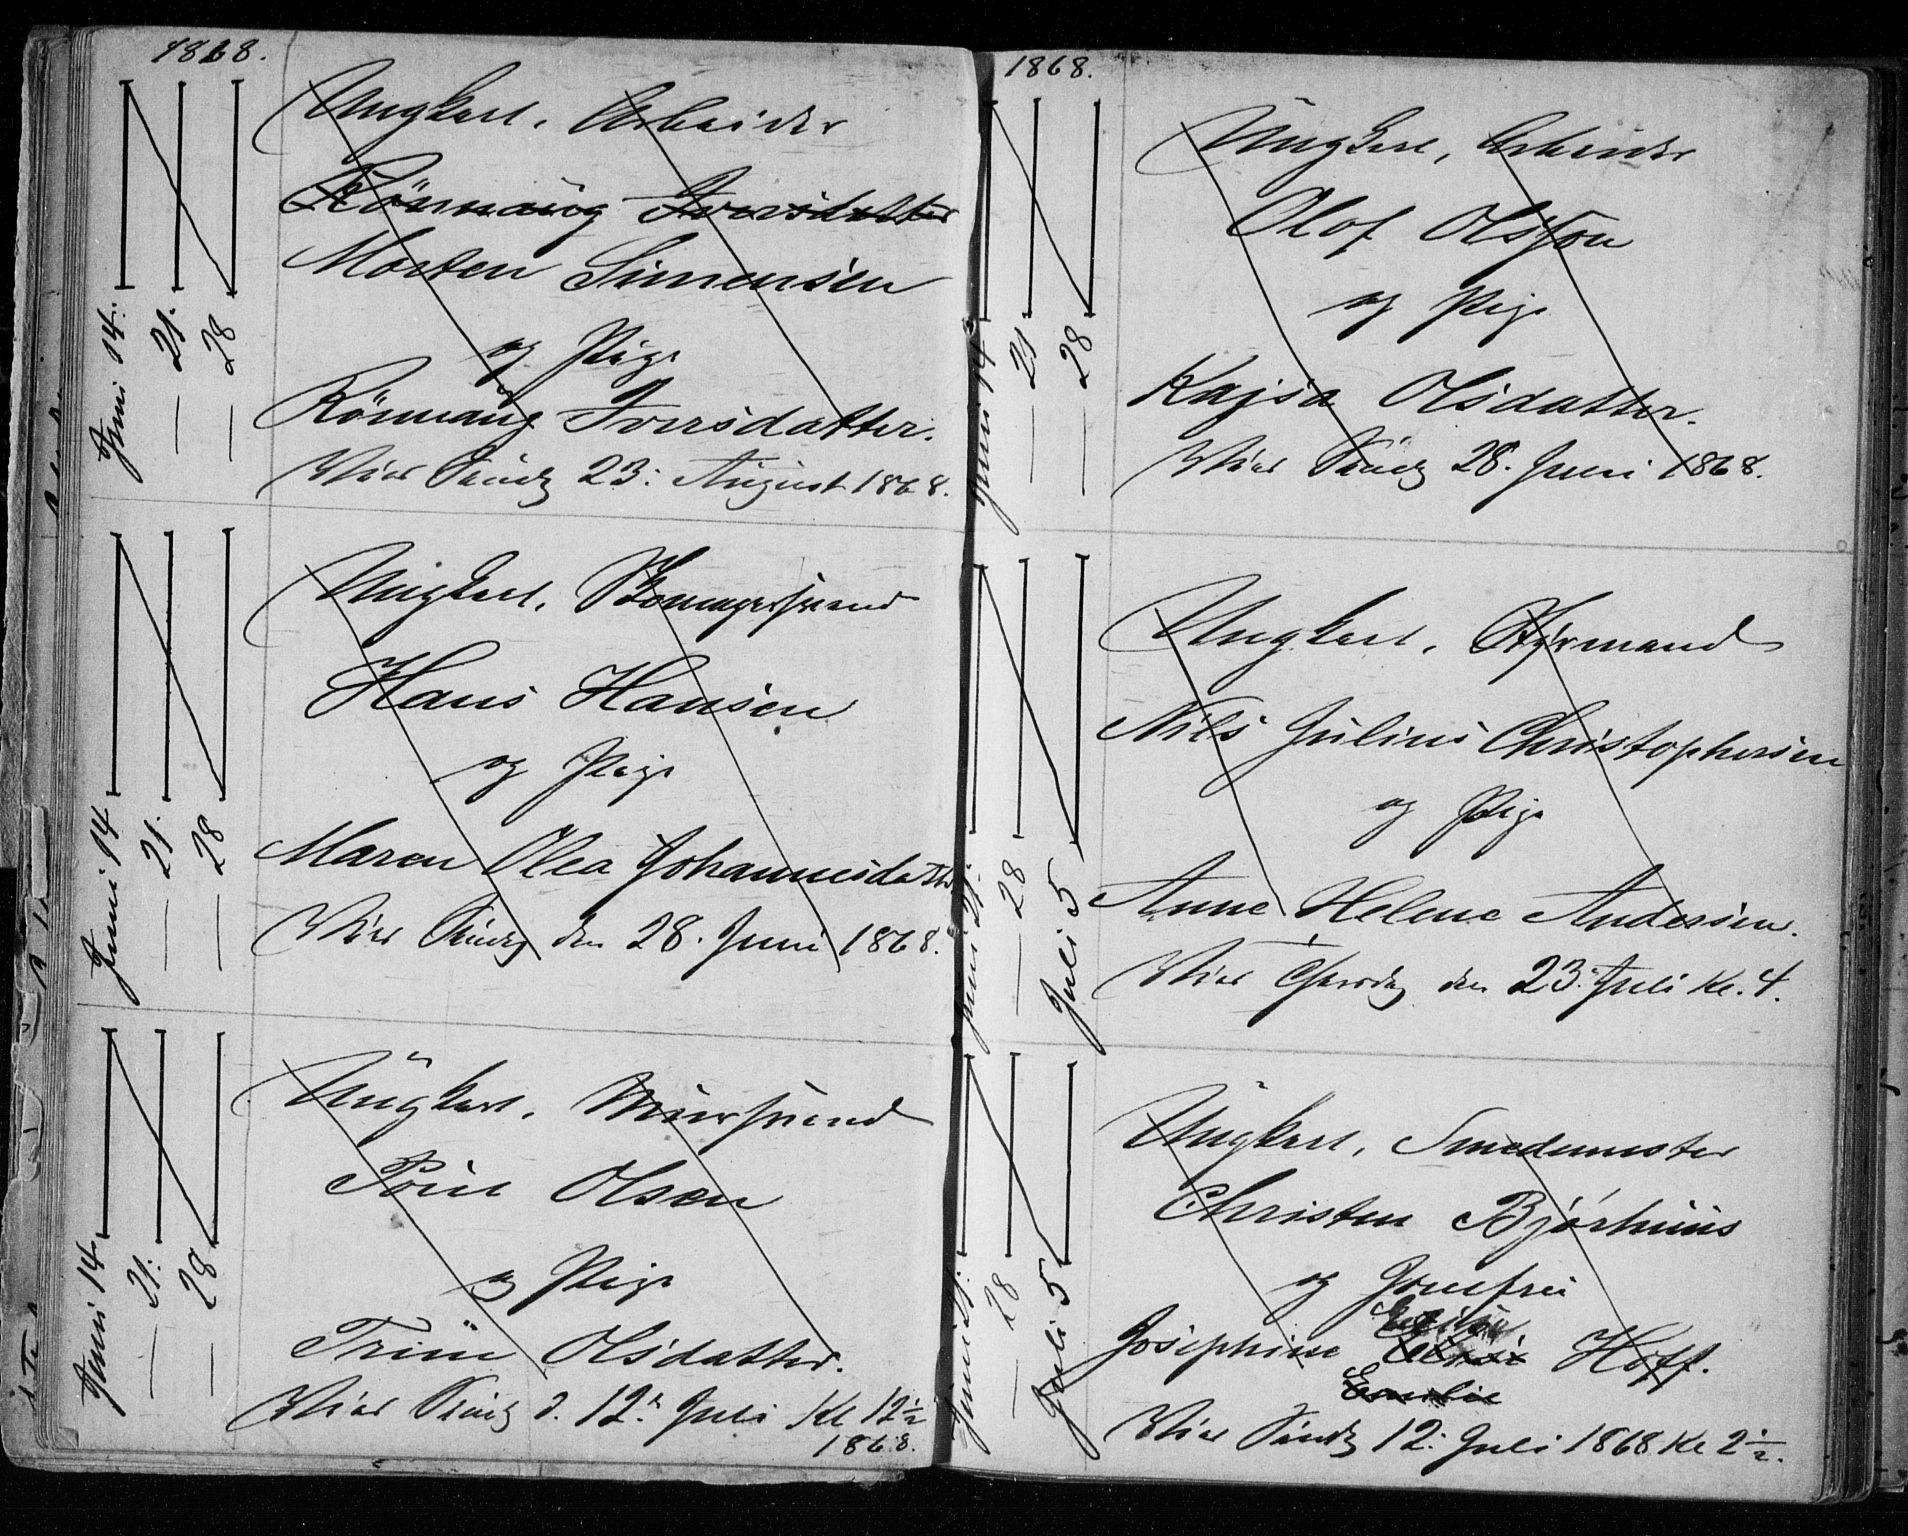 1868.
Juni 14.
— 21.
— 28
Ungkarl, Arbeider
Rönnaug Iversdatter
Morten Simensen
og Pige
Rönnaug Iversdatter.
Vies Söndg 23: August 1868.
Juni 14
— 21.
— 28
Ungkarl,
Hans Hansen
og Pige
Maren Olea Johannesdatt
Vies Söndg den 28. Juni 1868.
Juni 14
— 21.
— 28
Ungkarl, Muursvend
Poul Olsen
og Pige
Trine Olsdatter.
Vies Söndg d. 12te Juli Kl 12½
1868.
1868.
Juni 14
— 21
— 28
Ungkarl, Arbeider
Olof Olsson
og Pige
Kajsa Olsdatter.
Vies Söndg 28. Juni 1868.
Juni 21.
— 28
Juli 5
Ungkarl, Styrmand
Nils Julius Christophersen
og Pige
Anne Helene Andersen.
Vies Thorsdg den 23. Juli Kl. 4.
Juni 21.
— 28
Juli 5
Ungkarl, Smedemester
Christen Bjørhuus
og Jomfru
Josephine Hoff.
Emilie
Vies Söndg 12. Juli 1868 Kl 2½.